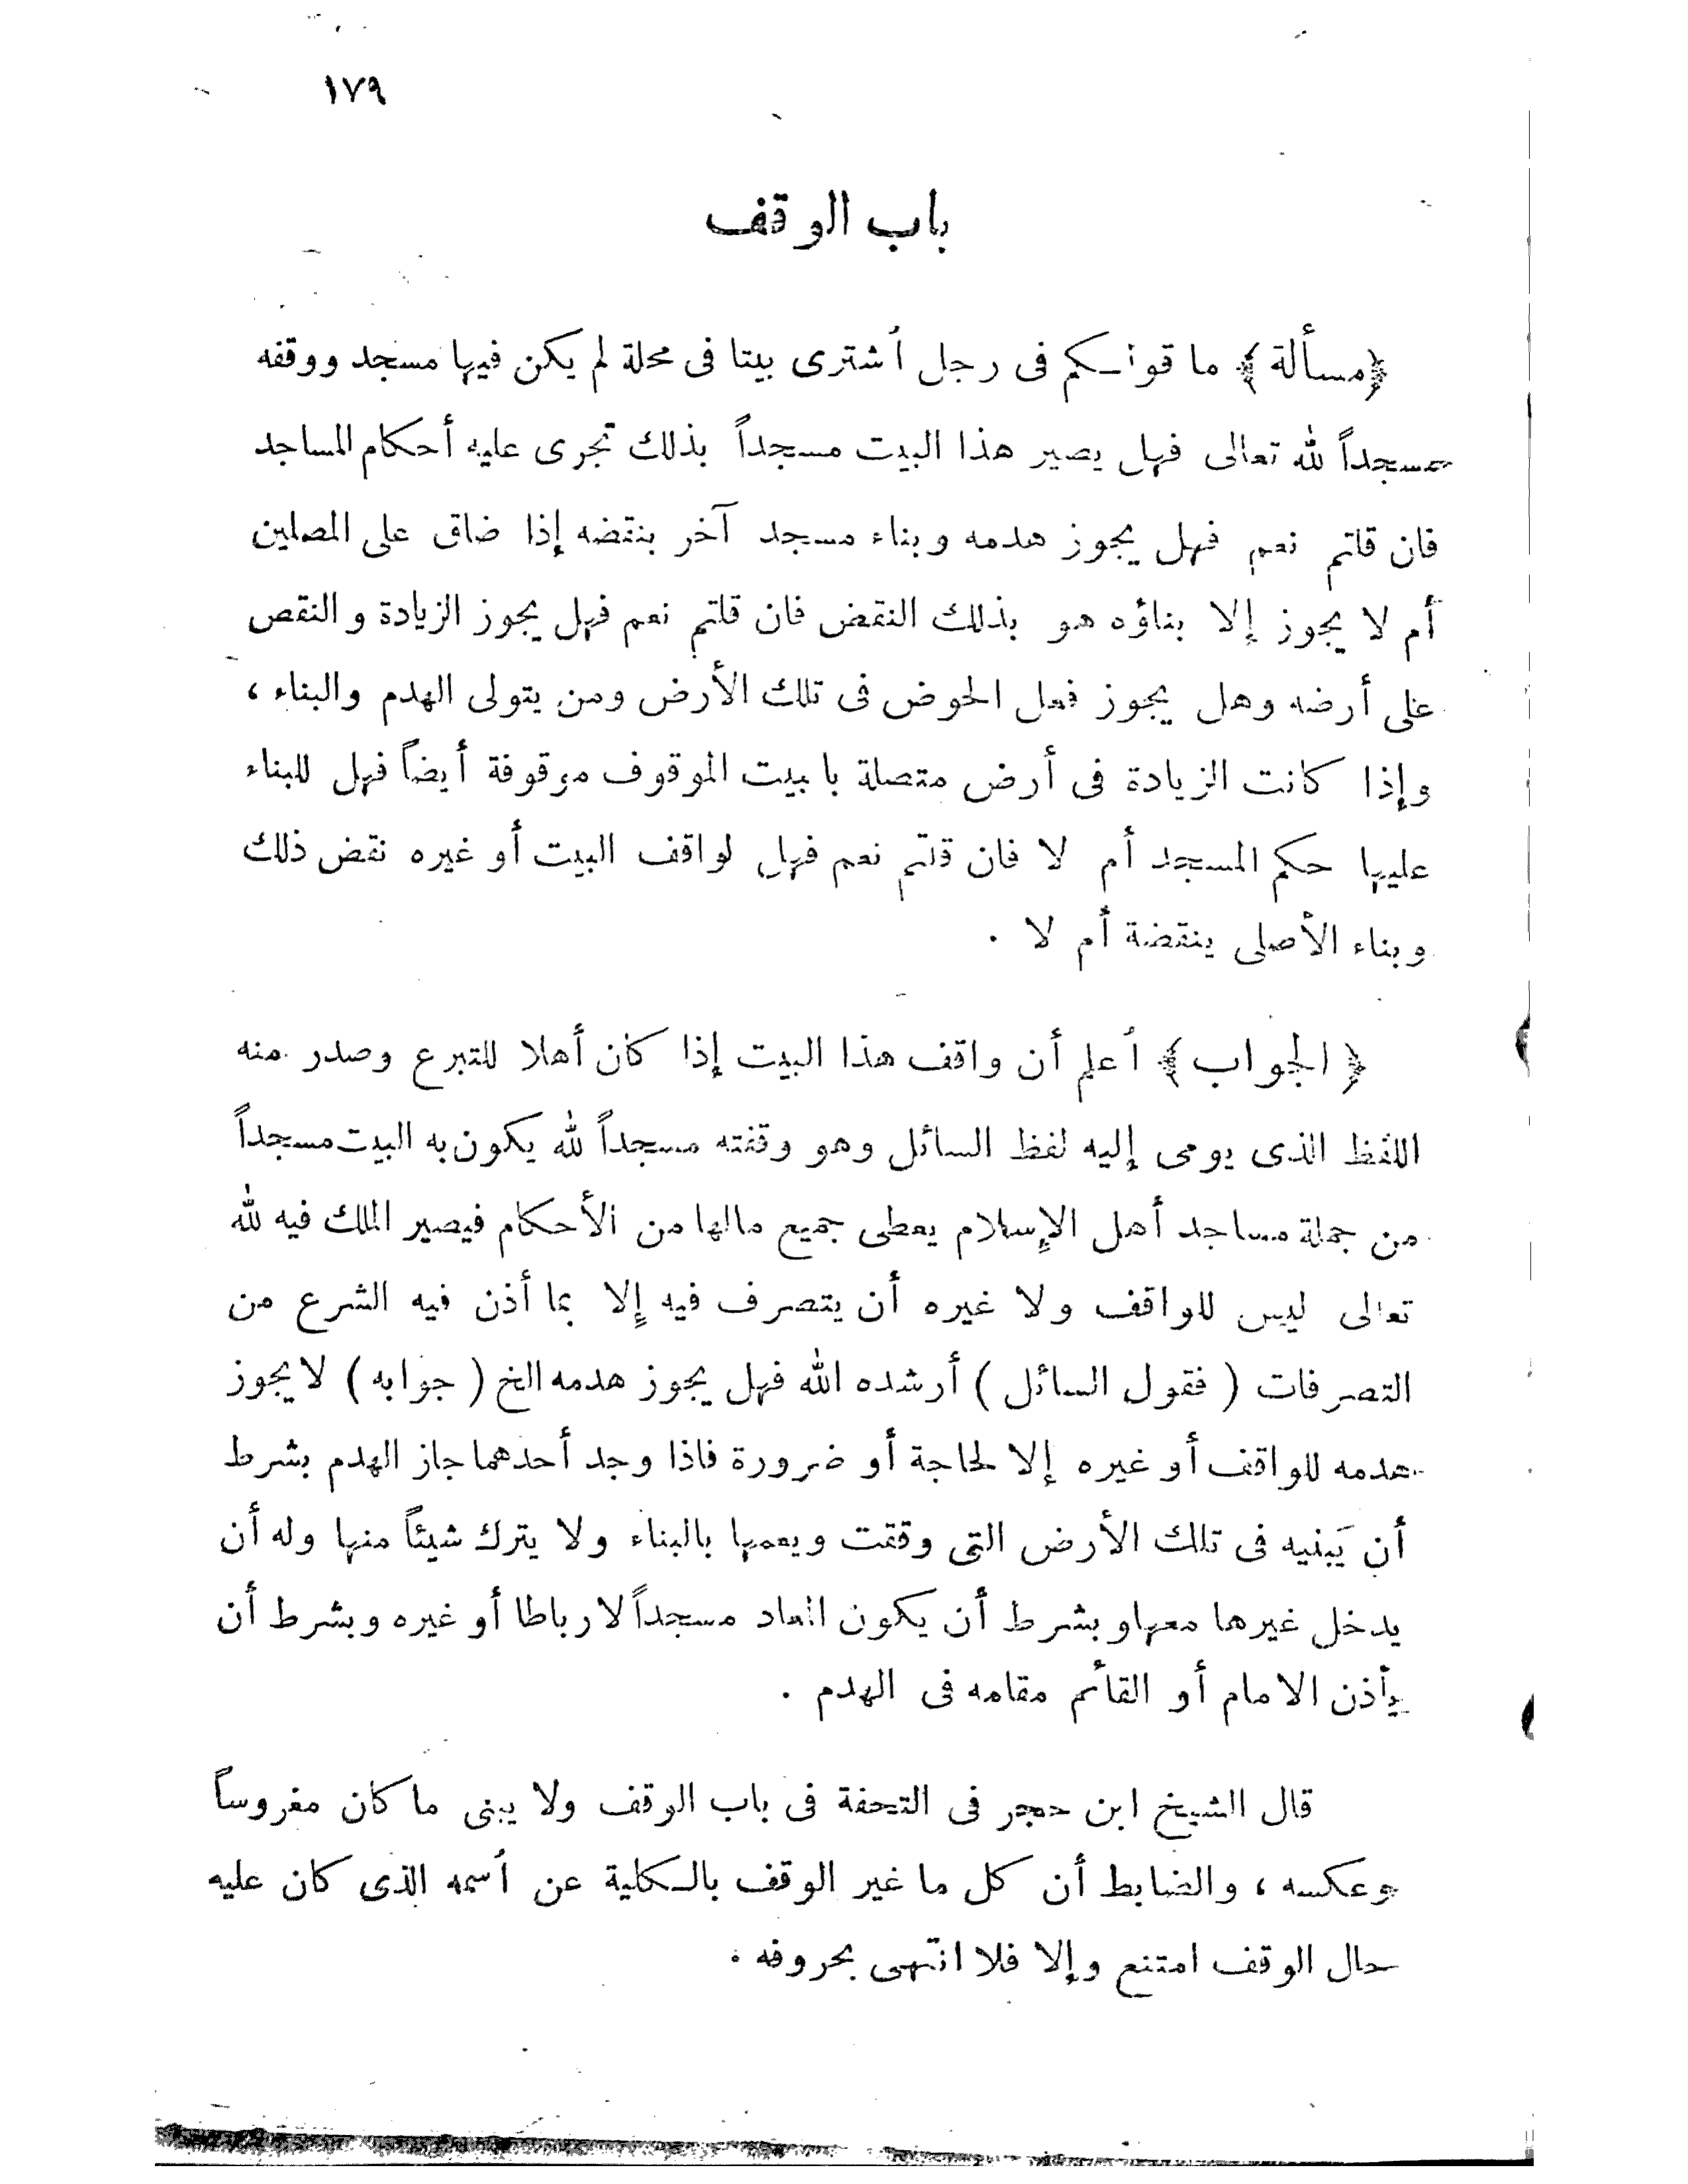 ١٧٩
باب الوقف
﴿مسألة﴾ ما قولكم فى رجل أشترى بيتا فى محلة لم يكن فيها مسجد ووقفه
مسجداً لله تعالى فهل يصير هذا البيت مسجداً بذلك تجرى عليه أحكام المساجد
فان قلتم نعم فهل يجوز هدمه وبناء مسجد آخر بنقضه إذا ضاق على المصلين
أم لا يجوز إلا بناؤه هو بذلك النقض فان قلتم نعم فهل يجوز الزيادة والنقص
على أرضه وهل يجوز فعل الحوض فى تلك الأرض ومن يتولى الهدم والبناء ،
وإذا كانت الزيادة فى أرض متصلة با بيت الموقوف موقوفة أيضاً فهل للبناء
عليها حكم المسجد أم لا فان قلتم نعم فهل لواقف البيت أو غيره نقض ذلك
وبناء الأصلى ينقضة أم لا .
﴿الجواب﴾ أعلم أن واقف هذا البيت إذا كان أهلا للتبرع وصدر منه
اللفظ الذى يومى إليه لفظ السائل وهو وقفته مسجداً لله يكون به البيت مسجداً
من جملة مساجد أهل الإسلام يعطى جميع مالها من الأحكام فيصير الملك فيه لله
تعالى ليس للواقف ولا غيره أن يتصرف فيه إلا بما أذن فيه الشرع من
التصرفات ( فقول السائل ) أرشده الله فهل يجوز هدمه الخ ( جوابه ) لا يجوز
هدمه للواقف أو غيره إلا لحاجة أو ضرورة فاذا وجد أحدهما جاز الهدم بشرط
أن يَبنيه فى تلك الأرض التى وقفت ويعمها بالبناء ولا يترك شيئاً منها وله أن
يدخل غيرها معها وبشرط أن يكون المعاد مسجداً لا رباطا أو غيره وبشرط أن
يأذن الامام أو القائم مقامه فى الهدم .
قال الشيخ ابن حجر فى التحفة فى باب الوقف ولا يبنى ما كان مغروساً
وعكسه ، والضابط أن كل ما غير الوقف بالكلية عن أسمه الذى كان عليه
حال الوقف امتنع وإلا فلا انتهى بحروفه .